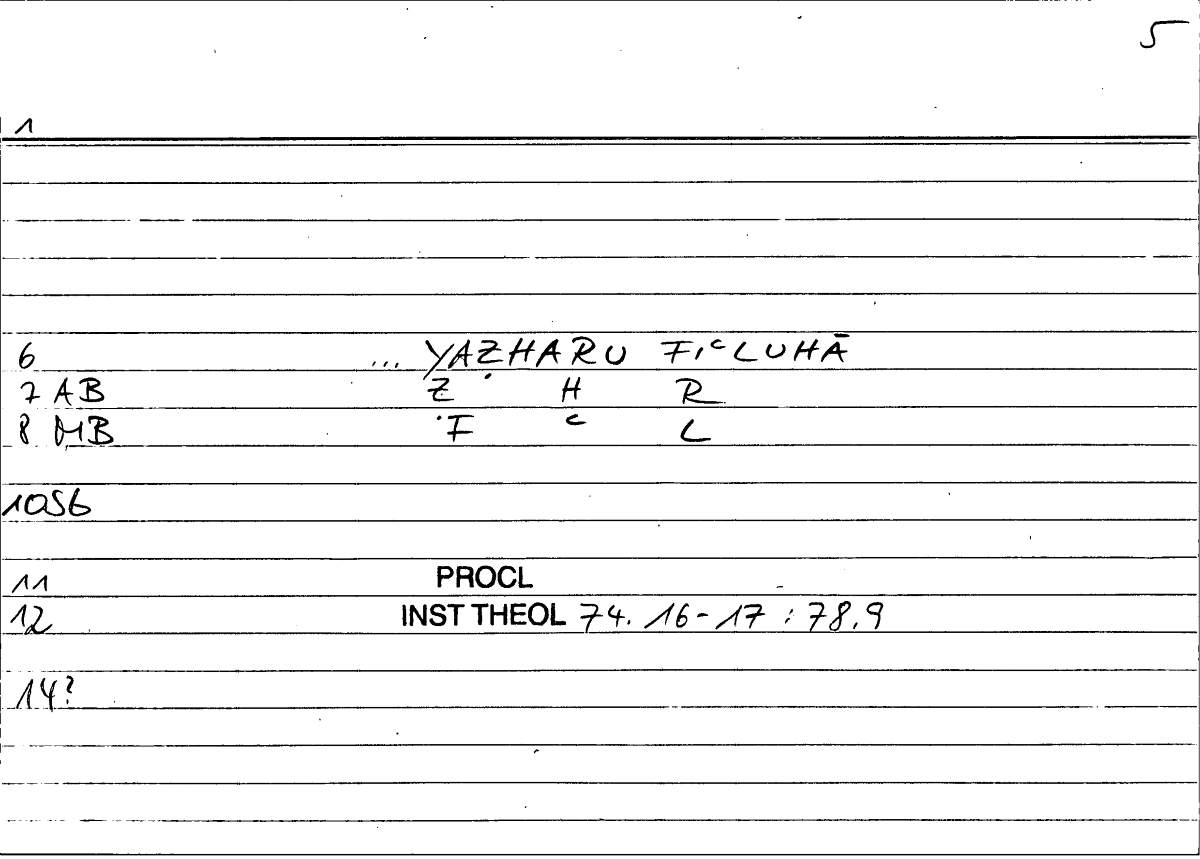 5
1
6 ... YAẒHARU FIᶜLUHĀ
7 AB Ẓ H R
8 MB F ᶜ L
10SB
11 PROCL
12 INST THEOL 74. 16-17 : 78.9
14?